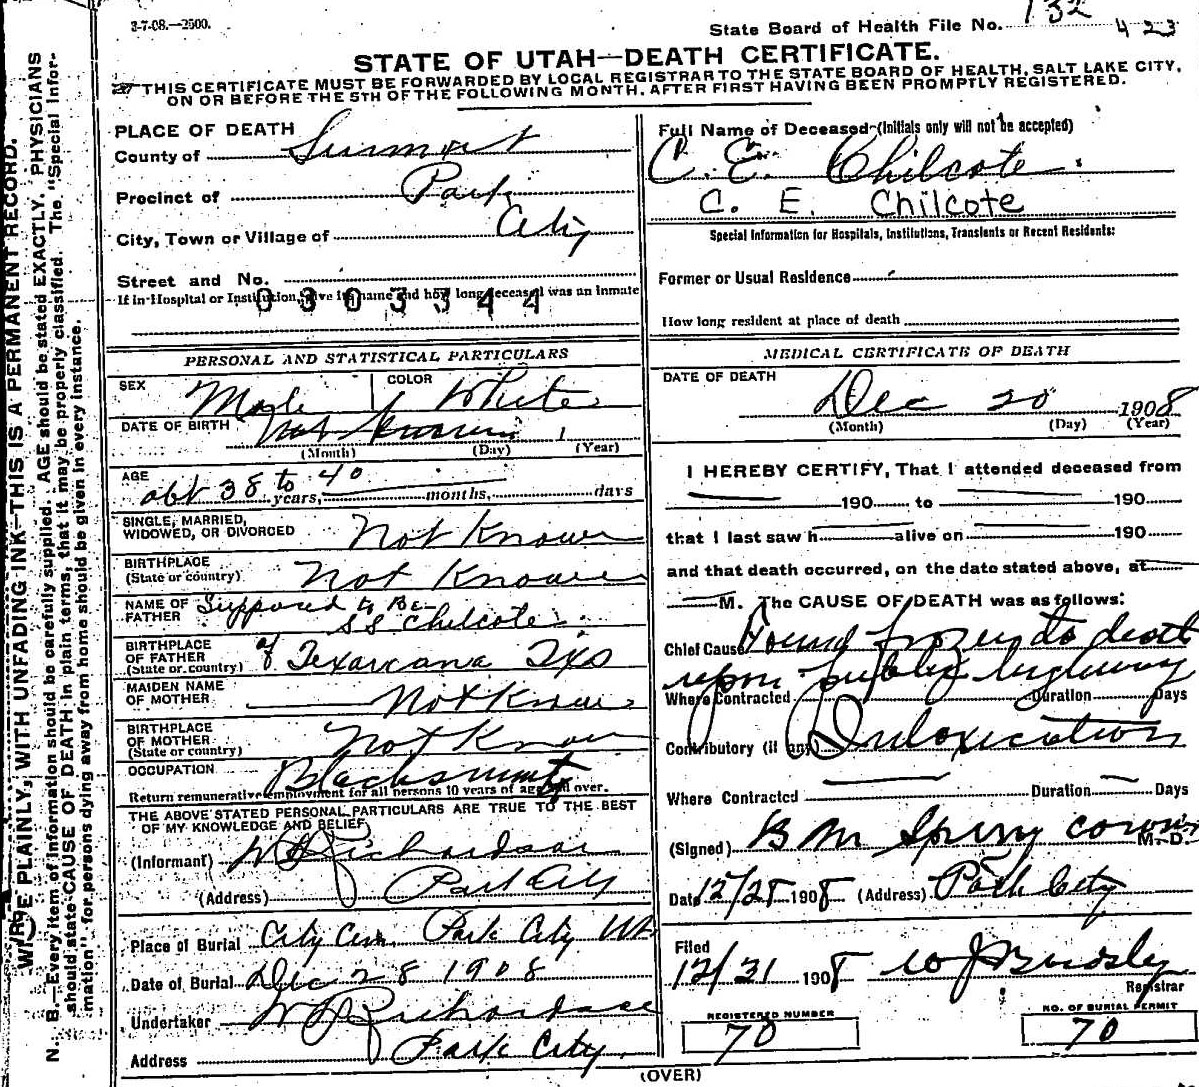 3-7-08.—2500.
State Board of Health File No. 132 423
STATE OF UTAH—DEATH CERTIFICATE.
THIS CERTIFICATE MUST BE FORWARDED BY LOCAL REGISTRAR TO THE STATE BOARD OF HEALTH, SALT LAKE CITY,
ON OR BEFORE THE 5TH OF THE FOLLOWING MONTH, AFTER FIRST HAVING BEEN PROMPTLY REGISTERED.
WRITE PLAINLY, WITH UNFADING INK—THIS IS A PERMANENT RECORD.
N. B.—Every item of information should be carefully supplied. AGE should be stated EXACTLY. PHYSICIANS
should state CAUSE OF DEATH in plain terms, that it may be properly classified. The "Special Infor-
mation" for persons dying away from home should be given in every instance.
PLACE OF DEATH
County of Summit
Precinct of Park
City, Town or Village of City
Street and No.
If in Hospital or Institution, give its name and how long deceased was an Inmate
0303344
PERSONAL AND STATISTICAL PARTICULARS
SEX Male COLOR White
DATE OF BIRTH Not Known 1
(Month) (Day) (Year)
AGE abt 38 to 40 years, months, days
SINGLE, MARRIED,
WIDOWED, OR DIVORCED Not Known
BIRTHPLACE
(State or country) Not Known
NAME OF
FATHER Supposed to Be
S S Chilcote
BIRTHPLACE
OF FATHER
(State or country) of Texarcana Txs
MAIDEN NAME
OF MOTHER Not Know
BIRTHPLACE
OF MOTHER
(State or country) Not Know
OCCUPATION Blacksmith
Return remunerative employment for all persons 10 years of age and over.
THE ABOVE STATED PERSONAL PARTICULARS ARE TRUE TO THE BEST
OF MY KNOWLEDGE AND BELIEF
(Informant) Richardson
(Address) Park City
Place of Burial City Cem. Park City Ut
Date of Burial Dec 28 1908
Undertaker Richardson
Address Park City
Full Name of Deceased (Initials only will not be accepted)
C. E. Chilcote
C. E. Chilcote
Special Information for Hospitals, Institutions, Transients or Recent Residents:
Former or Usual Residence
How long resident at place of death
MEDICAL CERTIFICATE OF DEATH
DATE OF DEATH
Dec 20 1908
(Month) (Day) (Year)
I HEREBY CERTIFY, That I attended deceased from
190 to 190
that I last saw h alive on 190
and that death occurred, on the date stated above, at
M. The CAUSE OF DEATH was as follows:
Chief Cause Found frozen to death
upon public highway
Where Contracted Duration Days
Contributory (if any) Intoxication
Where Contracted Duration Days
(Signed) B M Spriny M.D.
Date 12/28 1908 (Address) Park City
Filed
12/31 1908
Registrar
REGISTERED NUMBER
70
NO. OF BURIAL PERMIT
70
(OVER)